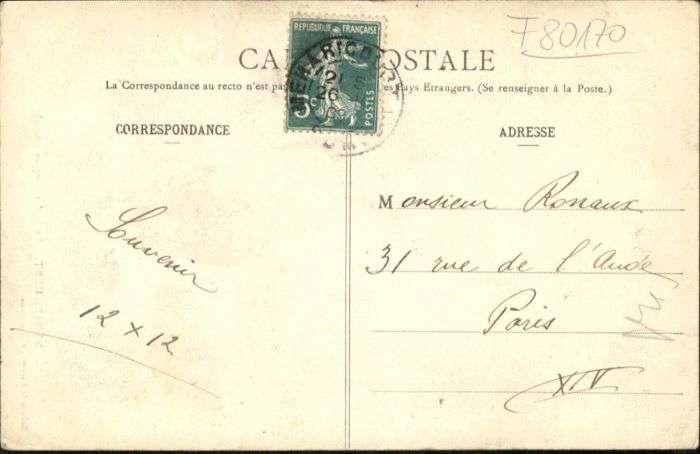 F80170
REPUBLIQUE FRANÇAISE
5c POSTES
MERICOURT
21
26
CA POSTALE
La Correspondance au recto n'est pas es Pays Etrangers. (Se renseigner à la Poste.)
CORRESPONDANCE
ADRESSE
Souvenir
12 x 12
Monsieur Ronaux
31 rue de l'Aude
Paris
XIV